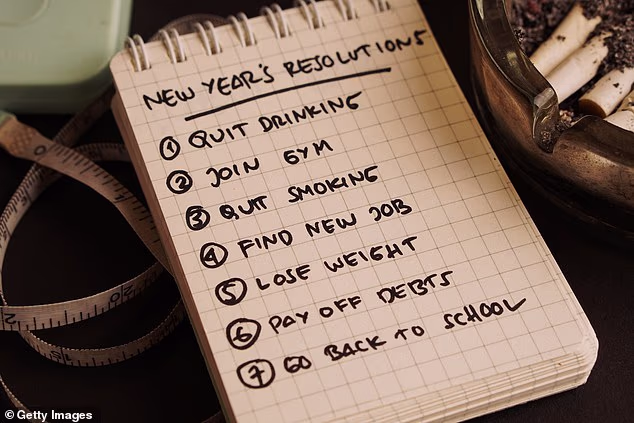 NEW YEAR'S RESOLUTIONS
1 QUIT DRINKING
2 JOIN GYM
3 QUIT SMOKING
4 FIND NEW JOB
5 LOSE WEIGHT
6 PAY OFF DEBTS
7 GO BACK TO SCHOOL
© Getty Images